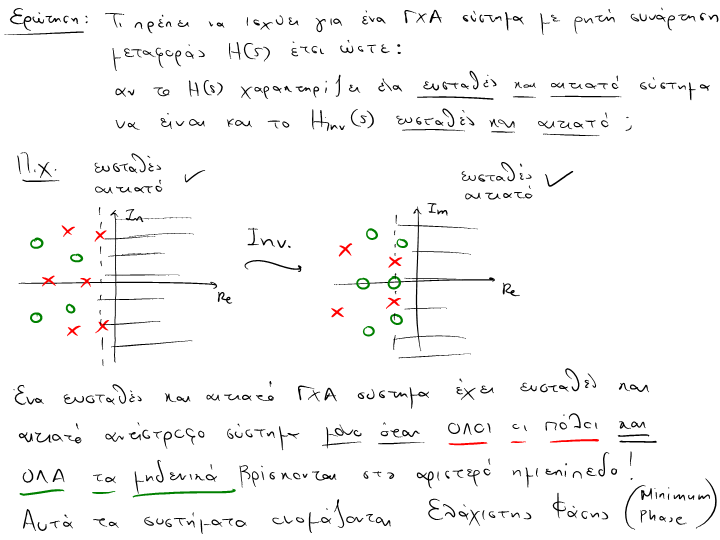 Ερώτηση: Τι πρέπει να ισχύει για ένα ΓΧΑ σύστημα με ρητή συνάρτηση
μεταφοράς H(s) έτσι ώστε:
αν το H(s) χαρακτηρίζει ένα ευσταθές και αιτιατό σύστημα
να είναι και το Hinv(s) ευσταθές και αιτιατό;
Π.χ.
ευσταθές
αιτιατό ✓
Im
Re
Inv.
ευσταθές
αιτιατό ✓
Im
Re
Ένα ευσταθές και αιτιατό ΓΧΑ σύστημα έχει ευσταθές και
αιτιατό αντίστροφο σύστημα μόνο όταν ΟΛΟΙ οι πόλοι και
ΟΛΑ τα μηδενικά βρίσκονται στο αριστερό ημιεπίπεδο!
Αυτά τα συστήματα ονομάζονται Ελάχιστης Φάσης (Minimum
Phase)